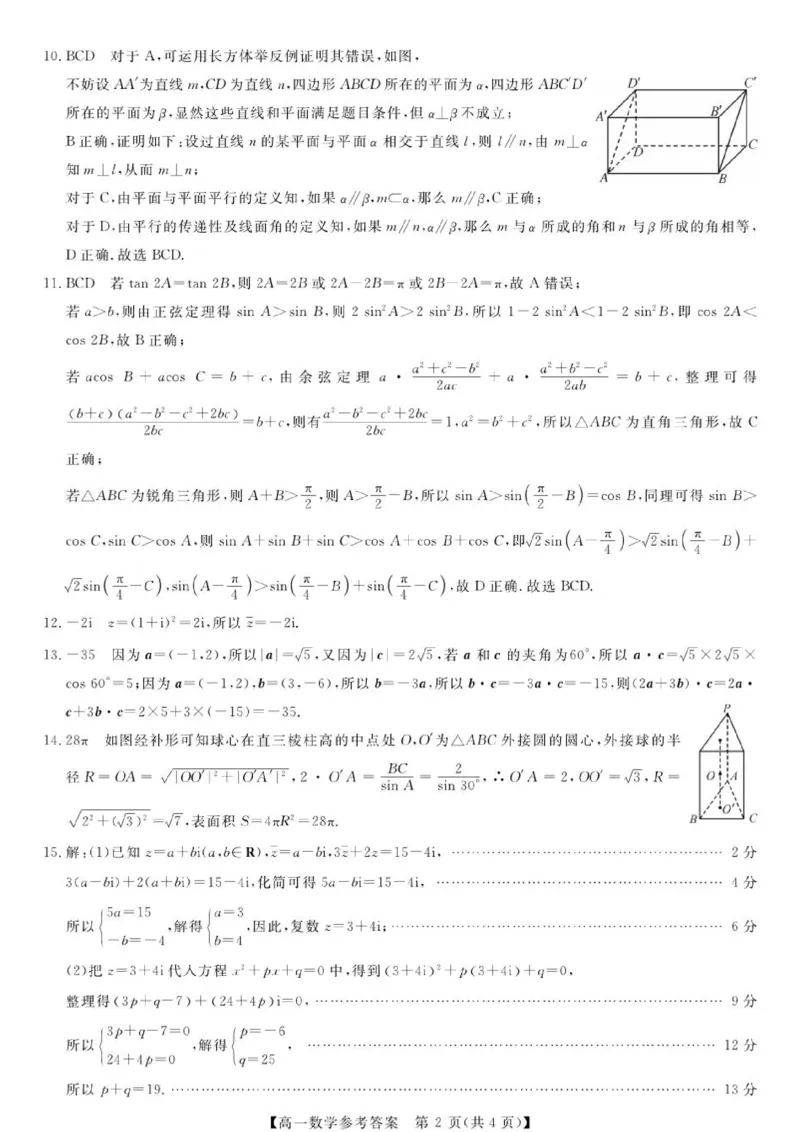 10. BCD 对于 A,可运用长方体举反例证明其错误,如图,
不妨设 AA′为直线 m,CD 为直线 n,四边形 ABCD 所在的平面为 α,四边形 ABC′D′
所在的平面为 β,显然这些直线和平面满足题目条件,但 α⊥β 不成立;
B 正确,证明如下:设过直线 n 的某平面与平面 α 相交于直线 l,则 l∥n,由 m⊥α
知 m⊥l,从而 m⊥n;
对于 C,由平面与平面平行的定义知,如果 α∥β,m⊂α,那么 m∥β,C 正确;
对于 D,由平行的传递性及线面角的定义知,如果 m∥n,α∥β,那么 m 与 α 所成的角和 n 与 β 所成的角相等,
D 正确.故选 BCD.
D′ C′
A′ B′
D C
A B
11. BCD 若 tan 2A=tan 2B,则 2A=2B 或 2A−2B=π 或 2B−2A=π,故 A 错误;
若 a>b,则由正弦定理得 sin A>sin B,则 2 sin²A>2 sin²B,所以 1−2 sin²A<1−2 sin²B,即 cos 2A<
cos 2B,故 B 正确;
若 acos B+acos C=b+c,由余弦定理 a·(a²+c²−b²)/2ac+a·(a²+b²−c²)/2ab=b+c,整理可得
(b+c)(a²−b²−c²+2bc)/2bc=b+c,则有(a²−b²−c²+2bc)/2bc=1,a²=b²+c²,所以△ABC 为直角三角形,故 C
正确;
若△ABC 为锐角三角形,则 A+B>π/2,则 A>π/2−B,所以 sin A>sin(π/2−B)=cos B,同理可得 sin B>
cos C,sin C>cos A,则 sin A+sin B+sin C>cos A+cos B+cos C,即√2sin(A−π/4)>√2sin(π/4−B)+
√2sin(π/4−C),sin(A−π/4)>sin(π/4−B)+sin(π/4−C),故 D 正确.故选 BCD.
12. −2i z=(1+i)²=2i,所以 z̅=−2i.
13. −35 因为 a=(−1,2),所以|a|=√5,又因为|c|=2√5,若 a 和 c 的夹角为60°,所以 a·c=√5×2√5×
cos 60°=5;因为 a=(−1,2),b=(3,−6),所以 b=−3a,所以 b·c=−3a·c=−15,则(2a+3b)·c=2a·
c+3b·c=2×5+3×(−15)=−35.
14. 28π 如图经补形可知球心在直三棱柱高的中点处 O,O′为△ABC 外接圆的圆心,外接球的半
径 R=OA=√(|OO′|²+|O′A′|²),2·O′A=BC/sin A=2/sin 30°,∴O′A=2,OO′=√3,R=
√(2²+(√3)²)=√7,表面积 S=4πR²=28π.
P
O A
O′
B C
15. 解:(1)已知 z=a+bi(a,b∈R),z̅=a−bi,3z̅+2z=15−4i, …… 2 分
3(a−bi)+2(a+bi)=15−4i,化简可得 5a−bi=15−4i, …… 4 分
所以{5a=15 −b=−4,解得{a=3 b=4,因此,复数 z=3+4i; …… 6 分
(2)把 z=3+4i 代入方程 x²+px+q=0 中,得到(3+4i)²+p(3+4i)+q=0,
整理得(3p+q−7)+(24+4p)i=0, …… 9 分
所以{3p+q−7=0 24+4p=0,解得{p=−6 q=25, …… 12 分
所以 p+q=19. …… 13 分
【高一数学参考答案 第 2 页(共 4 页)】